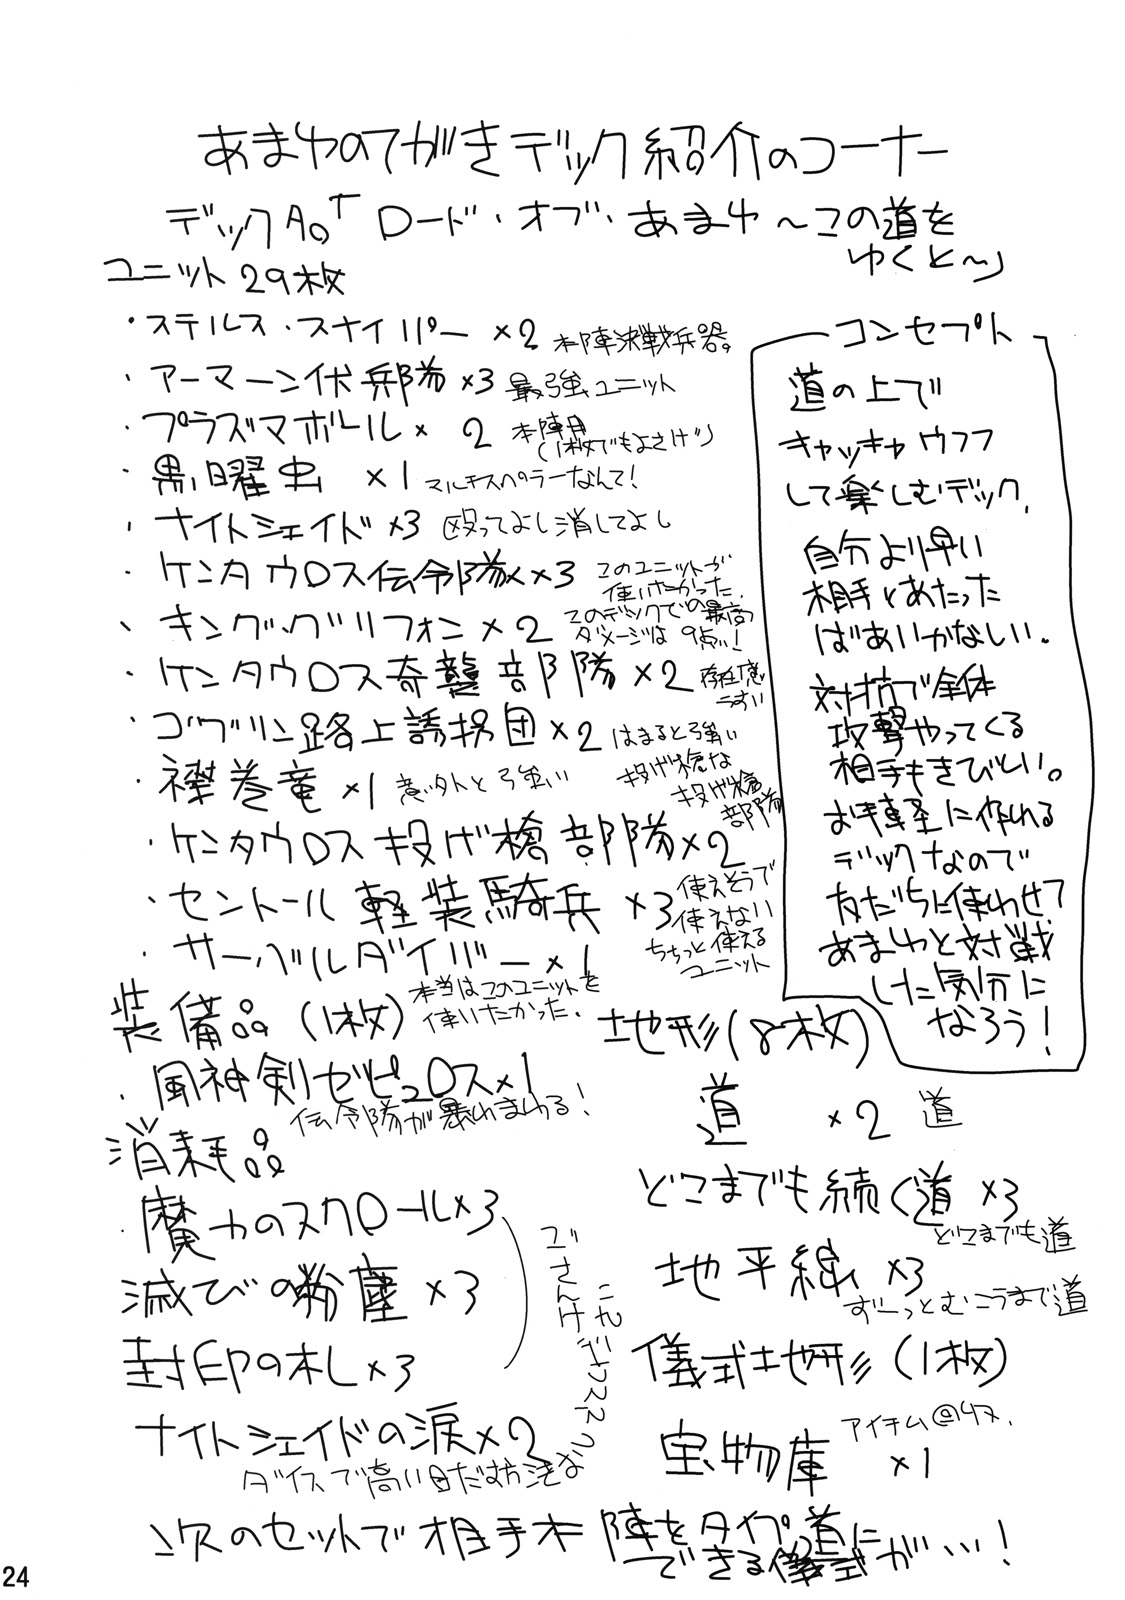 あまわのてがきデック紹介のコーナー
デックAの「ロード・オブ・あまわ～この道を
ゆくと～」
ユニット29枚
・ステルス・スナイパー×2 本陣決戦兵器。
・アーマーン伏兵部隊×3 最強ユニット
・プラズマボール×2 本陣用
(1枚でもよさげ)
・黒曜虫 ×1 マルチスペラーなんて!
・ナイトシェイド×3 殴ってよし消してよし
・ケンタウロス伝令隊×3 このユニットが
使いたかった。
・キング・グリフォン×2 このデックでの最高
ダメージは9点!
・ケンタウロス奇襲部隊×2 存在感
うすい
・ゴブリン路上誘拐団×2 はまると強い
・襟巻竜×1 意外と強い
・ケンタウロス投げ槍部隊×2 投げ槍な
投げ槍
部隊
・セントール軽装騎兵 ×3 使えそうで
使えない
ちょっと使える
ユニット
・サーバルダイバー×1
本当はこのユニットを
使いたかった。
装備品(1枚)
・風神剣ゼピュロス×1
伝令隊が暴れまわる!
消耗品
・魔力のスクロール×3
滅びの粉塵×3
封印の札×3
ごさんけ
ナイトシェイドの涙×2
ダイスで高い目だせば
コンセプト
道の上で
キャッキャウフフ
して楽しむデック。
自分より早い
相手とあたった
ばあいかなしい。
対抗で全体
攻撃やってくる
相手もきびしい。
お手軽に作れる
デックなので
友だちに使わせて
あまわと対戦
した気分に
なろう!
地形(8枚)
道 ×2 道
どこまでも続く道×3
どこまでも道
地平線×3
ずーっとむこうまで道
儀式地形(1枚)
宝物庫 ×1 アイテム回収。
次のセットで相手本陣をタイプ:道に
できる儀式が…!
24